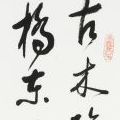 古木陰
橋東